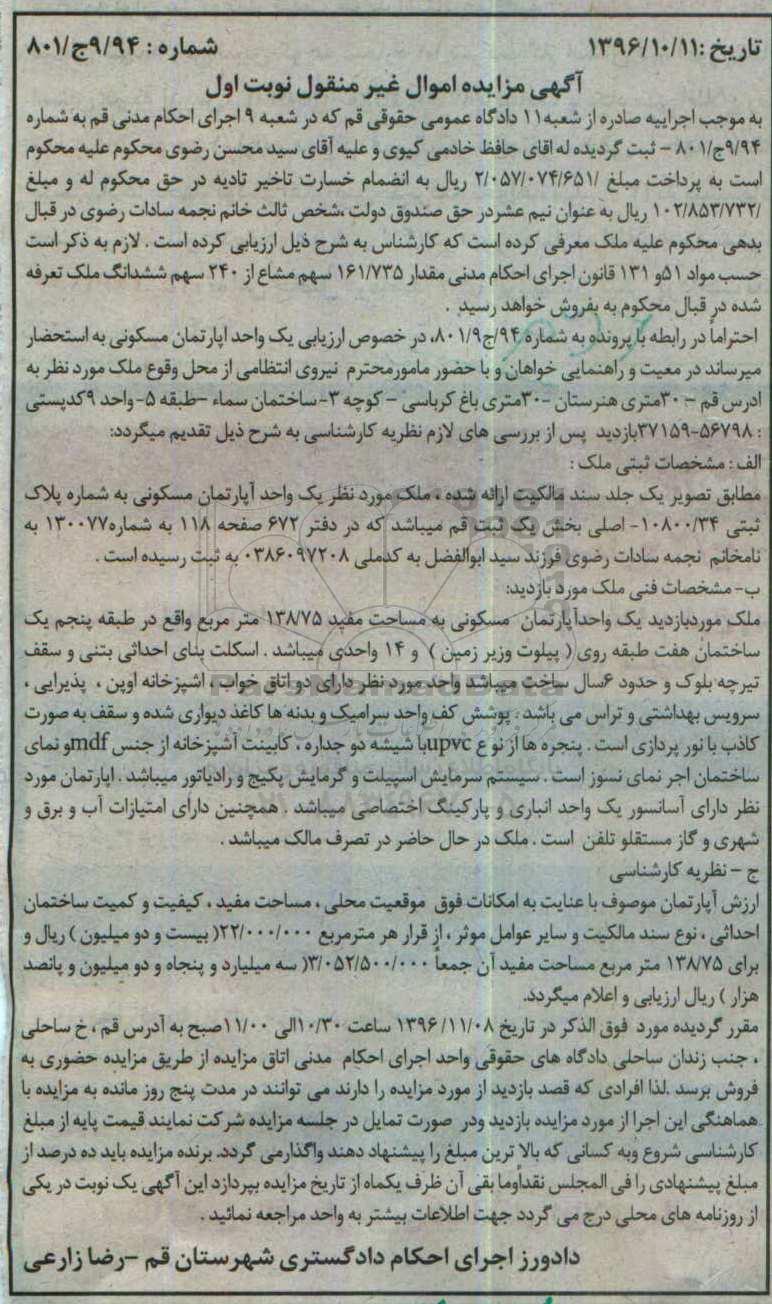 تاریخ :۱۳۹۶/۱۰/۱۱ شماره : ۹/۹۴ج/۸۰۱
آگهی مزایده اموال غیر منقول نوبت اول
به موجب اجراییه صادره از شعبه۱۱ دادگاه عمومی حقوقی قم که در شعبه ۹ اجرای احکام مدنی قم به شماره
۹/۹۴ج/۸۰۱ – ثبت گردیده له اقای حافظ خادمی کیوی و علیه آقای سید محسن رضوی محکوم علیه محکوم
است به پرداخت مبلغ /۲/۰۵۷/۰۷۴/۶۵۱ ریال به انضمام خسارت تاخیر تادیه در حق محکوم له و مبلغ
/۱۰۲/۸۵۳/۷۳۲ ریال به عنوان نیم عشردر حق صندوق دولت ،شخص ثالث خانم نجمه سادات رضوی در قبال
بدهی محکوم علیه ملک معرفی کرده است که کارشناس به شرح ذیل ارزیابی کرده است . لازم به ذکر است
حسب مواد ۵۱و ۱۳۱ قانون اجرای احکام مدنی مقدار ۱۶۱/۷۳۵ سهم مشاع از ۲۴۰ سهم ششدانگ ملک تعرفه
شده در قبال محکوم به بفروش خواهد رسید .
احتراماً در رابطه با پرونده به شماره ۹۴/ج۸۰۱/۹، در خصوص ارزیابی یک واحد اپارتمان مسکونی به استحضار
میرساند در معیت و راهنمایی خواهان و با حضور مامورمحترم نیروی انتظامی از محل وقوع ملک مورد نظر به
ادرس قم – ۳۰متری هنرستان -۳۰متری باغ کرباسی – کوچه ۳- ساختمان سماء –طبقه ۵- واحد ۹کدپستی
: ۵۶۷۹۸-۳۷۱۵۹بازدید پس از بررسی های لازم نظریه کارشناسی به شرح ذیل تقدیم میگردد:
الف : مشخصات ثبتی ملک :
مطابق تصویر یک جلد سند مالکیت ارائه شده ، ملک مورد نظر یک واحد آپارتمان مسکونی به شماره پلاک
ثبتی ۱۰۸۰۰/۳۴- اصلی بخش یک ثبت قم میباشد که در دفتر ۶۷۲ صفحه ۱۱۸ به شماره۱۳۰۰۷۷ به
نامخانم نجمه سادات رضوی فرزند سید ابوالفضل به کدملی ۰۳۸۶۰۹۷۲۰۸ به ثبت رسیده است .
ب- مشخصات فنی ملک مورد بازدید:
ملک موردبازدید یک واحدآپارتمان مسکونی به مساحت مفید ۱۳۸/۷۵ متر مربع واقع در طبقه پنجم یک
ساختمان هفت طبقه روی ( پیلوت وزیر زمین ) و ۱۴ واحدی میباشد . اسکلت بنای احداثی بتنی و سقف
تیرچه بلوک و حدود ۶سال ساخت میباشد واحد مورد نظر دارای دو اتاق خواب ، اشپزخانه اوپن ، پذیرایی ،
سرویس بهداشتی و تراس می باشد . پوشش کف واحد سرامیک و بدنه ها کاغذ دیواری شده و سقف به صورت
کاذب با نور پردازی است . پنجره ها از نوع upvcبا شیشه دو جداره ، کابینت آشپزخانه از جنس mdfو نمای
ساختمان اجر نمای نسوز است . سیستم سرمایش اسپیلت و گرمایش پکیج و رادیاتور میباشد . اپارتمان مورد
نظر دارای آسانسور یک واحد انباری و پارکینگ اختصاصی میباشد . همچنین دارای امتیازات آب و برق و
شهری و گاز مستقلو تلفن است . ملک در حال حاضر در تصرف مالک میباشد .
ج – نظریه کارشناسی
ارزش آپارتمان موصوف با عنایت به امکانات فوق موقعیت محلی ، مساحت مفید ، کیفیت و کمیت ساختمان
احداثی ، نوع سند مالکیت و سایر عوامل موثر ، از قرار هر مترمربع ۲۲/۰۰۰/۰۰۰( بیست و دو میلیون ) ریال و
برای ۱۳۸/۷۵ متر مربع مساحت مفید آن جمعاً ۳/۰۵۲/۵۰۰/۰۰۰( سه میلیارد و پنجاه و دو میلیون و پانصد
هزار ) ریال ارزیابی و اعلام میگردد.
مقرر گردیده مورد فوق الذکر در تاریخ ۱۳۹۶/۱۱/۰۸ ساعت ۱۰/۳۰الی ۱۱/۰۰صبح به آدرس قم ، خ ساحلی
، جنب زندان ساحلی دادگاه های حقوقی واحد اجرای احکام مدنی اتاق مزایده از طریق مزایده حضوری به
فروش برسد .لذا افرادی که قصد بازدید از مورد مزایده را دارند می توانند در مدت پنج روز مانده به مزایده با
هماهنگی این اجرا از مورد مزایده بازدید ودر صورت تمایل در جلسه مزایده شرکت نمایند قیمت پایه از مبلغ
کارشناسی شروع وبه کسانی که بالا ترین مبلغ را پیشنهاد دهند واگذارمی گردد. برنده مزایده باید ده درصد از
مبلغ پیشنهادی را فی المجلس نقداًوما بقی آن ظرف یکماه از تاریخ مزایده بپردازد این آگهی یک نوبت در یکی
از روزنامه های محلی درج می گردد جهت اطلاعات بیشتر به واحد مراجعه نمائید .
دادورز اجرای احکام دادگستری شهرستان قم –رضا زارعی